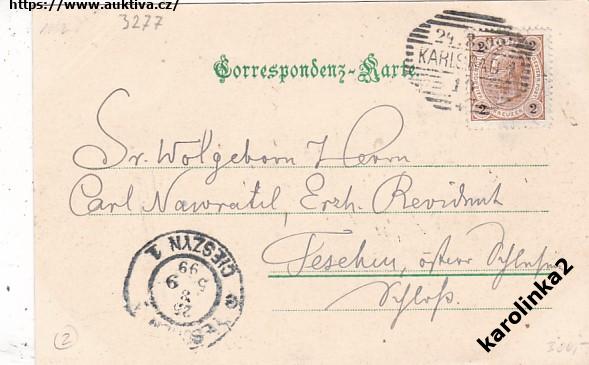 https://www.auktiva.cz/
3277
Correspondenz-Karte
24.8
KARLSBAD
2 2
2 2
KREUZER
Sr. Wolgeborn Herrn
Carl Nawratil, Erzh. Revident
Teschen, österr Schlesien
Schloß.
TESCHEN
CIESZYN 1
25 8
5 9
99
2
karolinka2